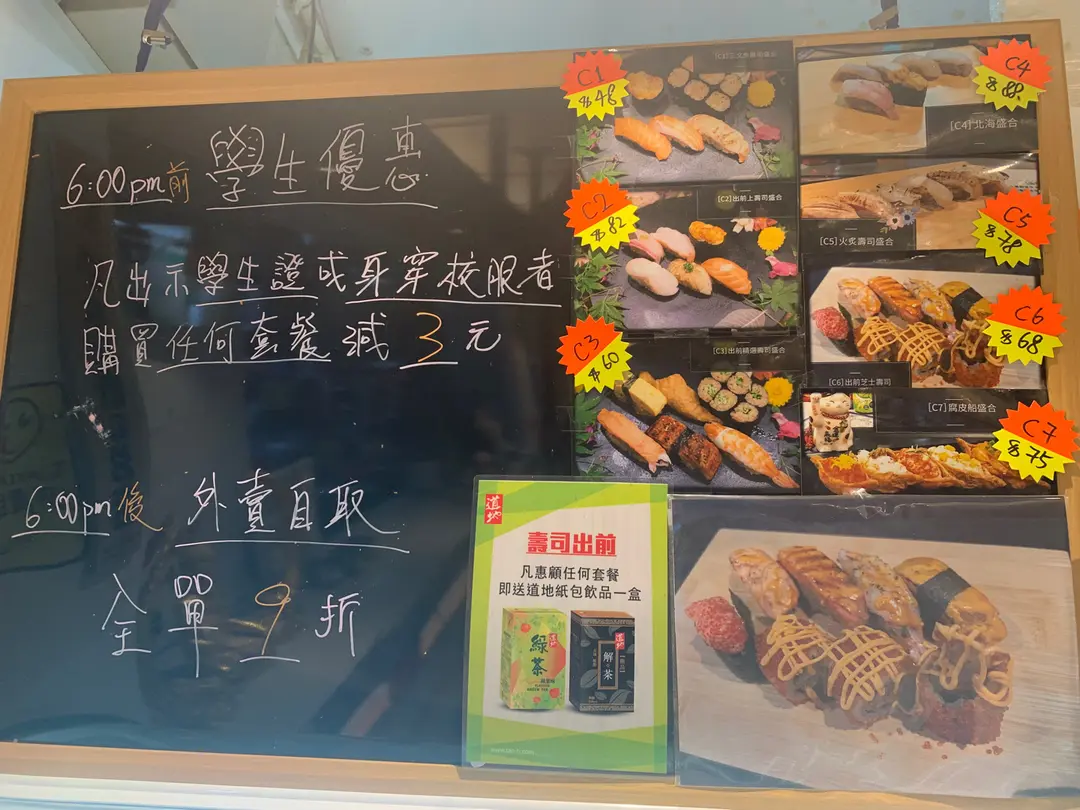 6:00pm前 學生優惠
凡出示學生證或身穿校服者
購買任何套餐減3元
6:00pm後 外賣自取
全單9折
C1
$48
C2
$82
[C2]出前上壽司盛合
C3
$60
[C3]出前精選壽司盛合
C4
$88
[C4]北海盛合
C5
$78
[C5]火炙壽司盛合
C6
$68
[C6]出前芝士壽司
C7
$75
[C7]腐皮船盛合
道地
壽司出前
凡惠顧任何套餐
即送道地紙包飲品一盒
道地
綠茶
GREEN TEA
道地
解·茶